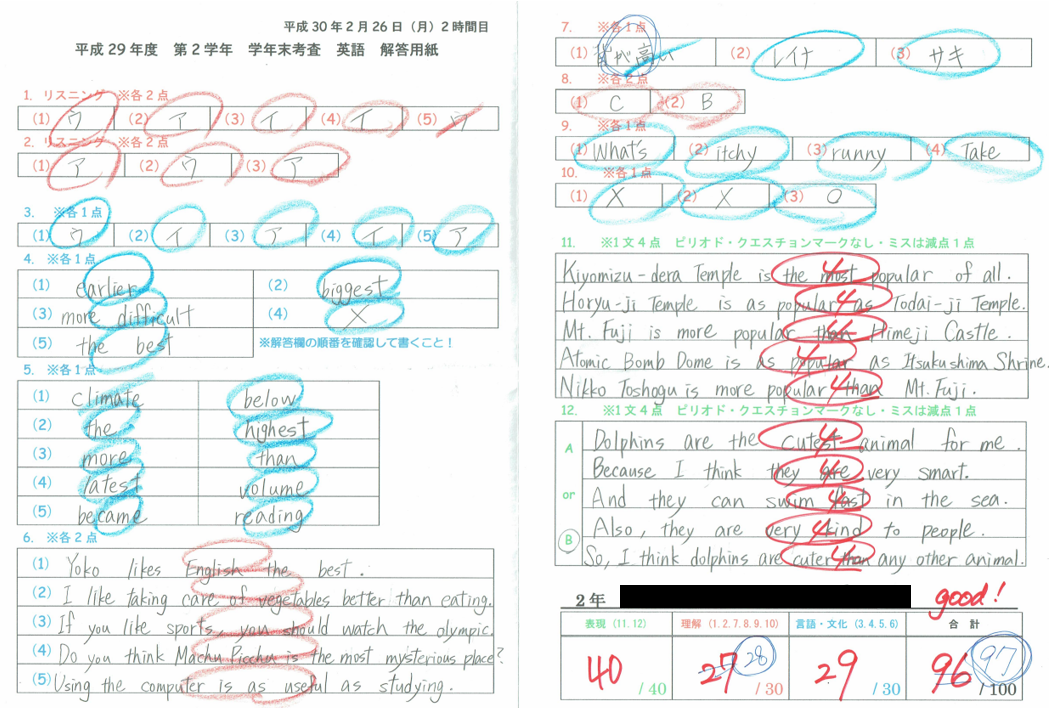 平成30年2月26日（月）2時間目
平成29年度　第2学年　学年末考査　英語　解答用紙
1. リスニング　※各2点
(1) ウ (2) ア (3) イ (4) イ (5) ウ
2. リスニング　※各2点
(1) ア (2) ウ (3) ア
3. ※各1点
(1) ウ (2) イ (3) ア (4) イ (5) ア
4. ※各1点
(1) earlier (2) biggest
(3) more difficult (4) X
(5) the best ※解答欄の順番を確認して書くこと！
5. ※各1点
(1) climate below
(2) the highest
(3) more than
(4) latest volume
(5) became reading
6. ※各2点
(1) Yoko likes English the best.
(2) I like taking care of vegetables better than eating.
(3) If you like sports, you should watch the olympic.
(4) Do you think Machu Picchu is the most mysterious place?
(5) Using the computer is as useful as studying.
7. ※各1点
(1) 背が高い (2) レイナ (3) サキ
8. ※各2点
(1) C (2) B
9. ※各1点
(1) What's (2) itchy (3) runny (4) Take
10. ※各1点
(1) X (2) X (3) O
11. ※1文4点　ピリオド・クエスチョンマークなし・ミスは減点1点
Kiyomizu-dera Temple is the most popular of all. 4
Horyu-ji Temple is as popular as Todai-ji Temple. 4
Mt. Fuji is more popular than Himeji Castle. 4
Atomic Bomb Dome is as popular as Itsukushima Shrine. 4
Nikko Toshogu is more popular than Mt. Fuji. 4
12. ※1文4点　ピリオド・クエスチョンマークなし・ミスは減点1点
A Dolphins are the cutest animal for me. 4
Because I think they are very smart. 4
or And they can swim fast in the sea. 4
B Also, they are very kind to people. 4
So, I think dolphins are cuter than any other animal. 4
2年 good!
表現（11.12） 理解（1.2.7.8.9.10） 言語・文化（3.4.5.6） 合計
40 /40 27 28 /30 29 /30 96 97 /100